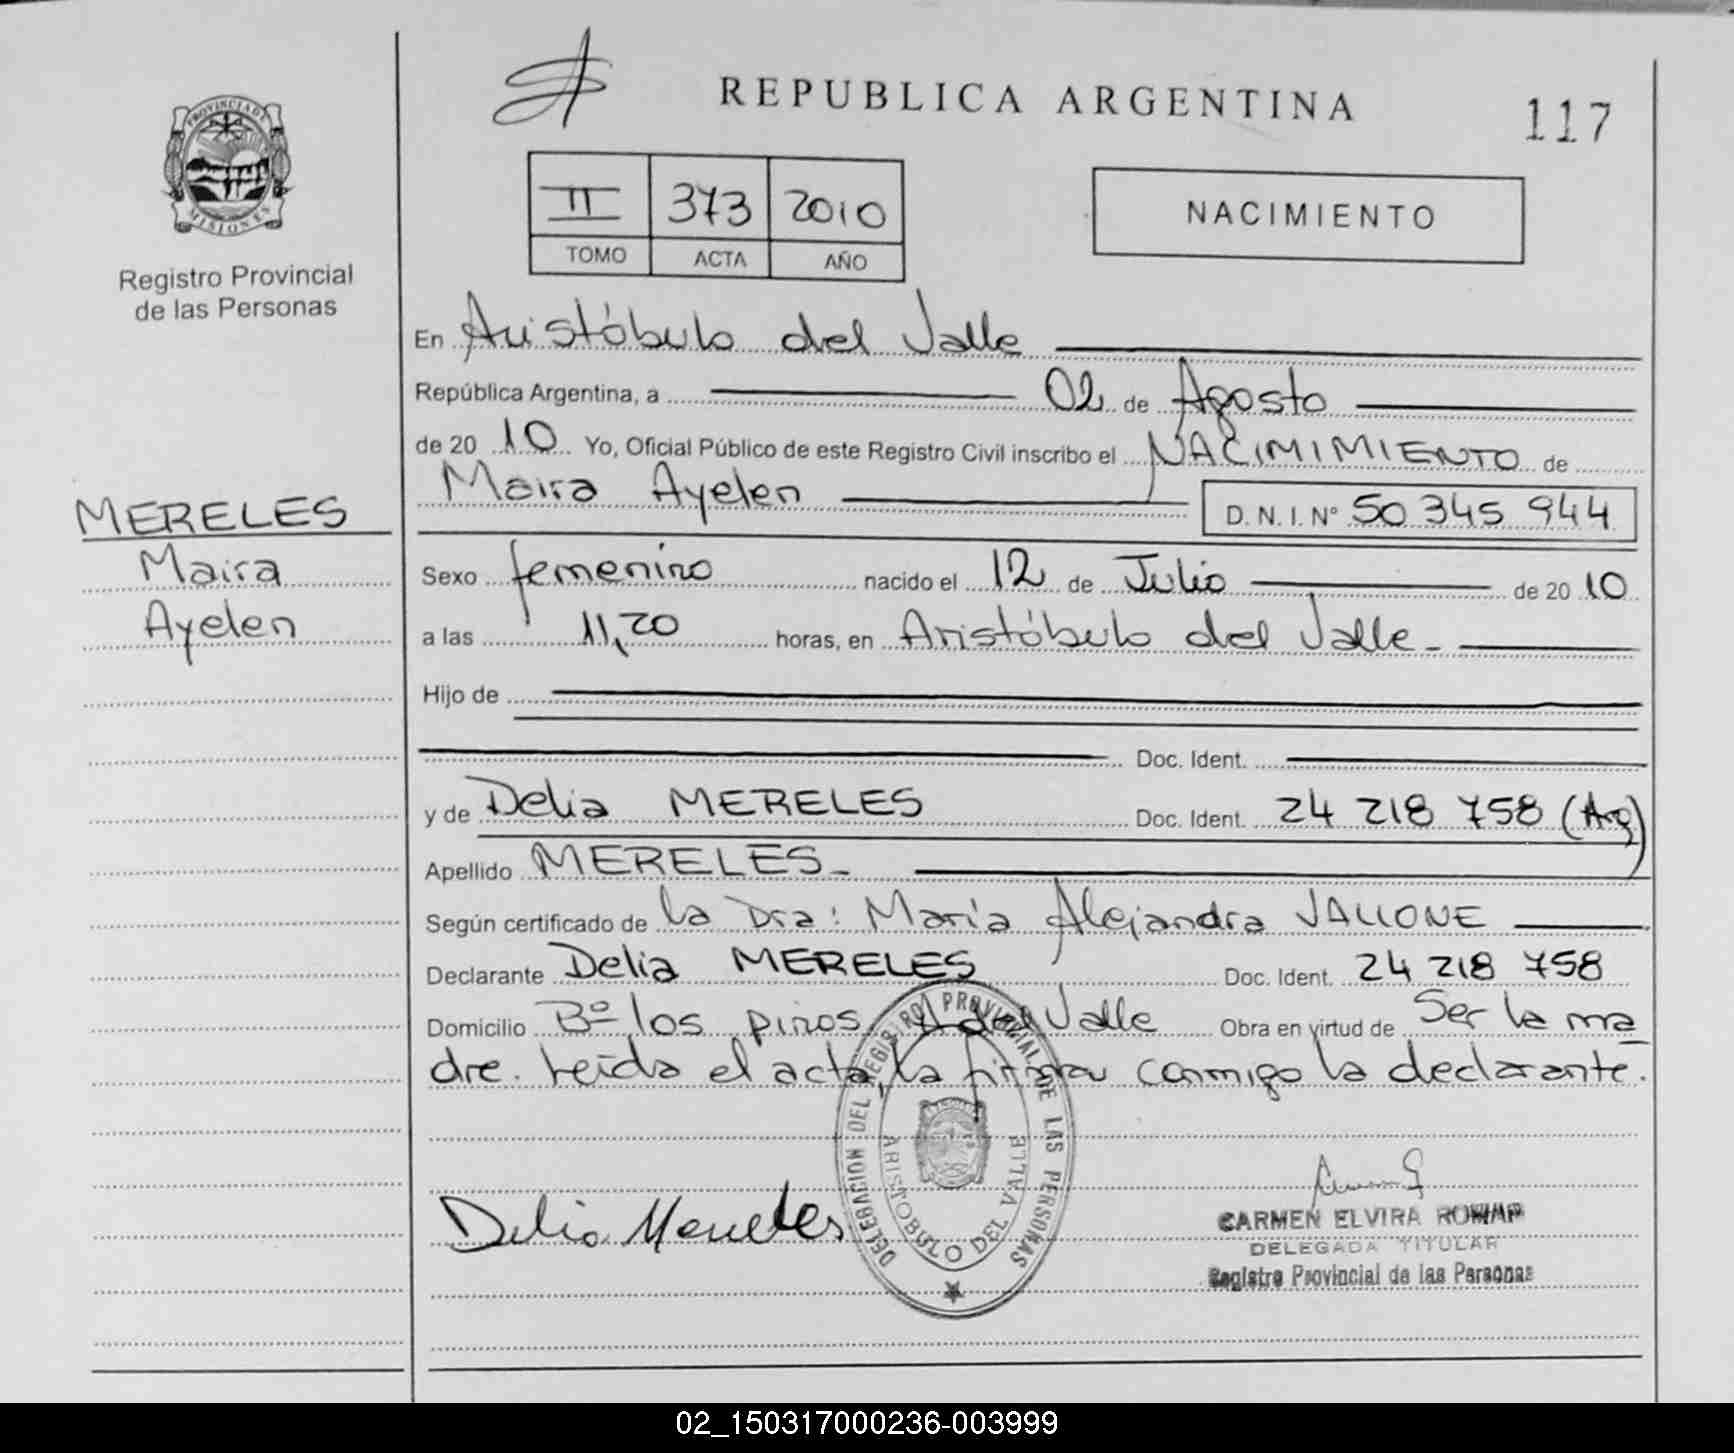 REPUBLICA ARGENTINA
117
PROVINCIA DE MISIONES
Registro Provincial
de las Personas
II 373 2010
TOMO ACTA AÑO
NACIMIENTO
En Aristóbulo del Valle
República Argentina, a 02 de Agosto
de 20 10 Yo, Oficial Público de este Registro Civil inscribo el NACIMIMIENTO de
Maira Ayelen
D.N.I. Nº 50 345 944
MERELES
Maira
Ayelen
Sexo femenino nacido el 12 de Julio de 20 10
a las 11,20 horas, en Aristóbulo del Valle.-
Hijo de
Doc. Ident.
y de Delia MERELES Doc. Ident. 24 218 758 (Arg)
Apellido MERELES.-
Según certificado de la Dra: María Alejandra VALLONE
Declarante Delia MERELES Doc. Ident. 24 218 758
Domicilio Bº los pinos A del Valle Obra en virtud de Ser la ma
dre. leída el acta, la firma conmigo la declarante.
Delia Mereles
DELEGACION DEL REGISTRO PROVINCIAL DE LAS PERSONAS
ARISTOBULO DEL VALLE
CARMEN ELVIRA
DELEGADA TITULAR
Registro Provincial de las Personas
02_150317000236-003999